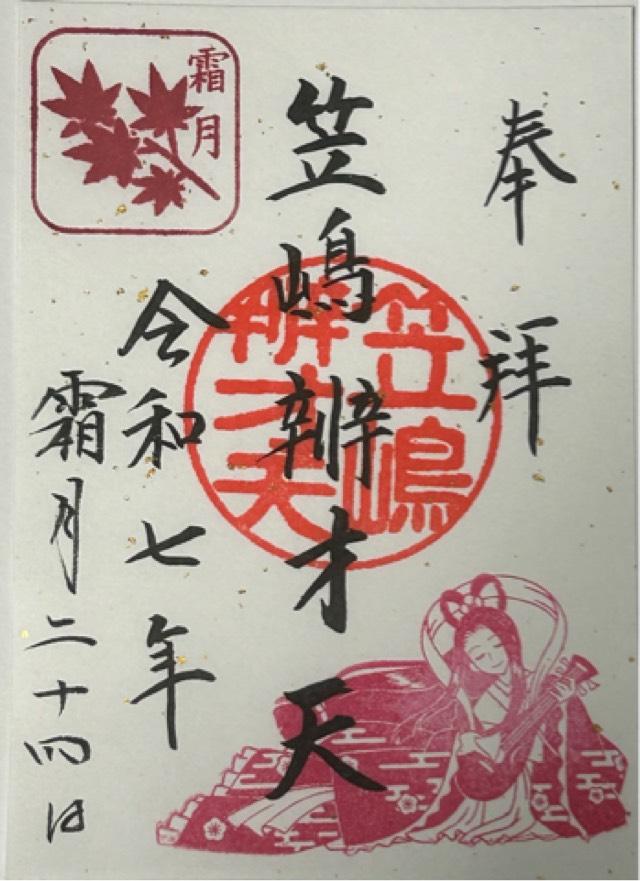 奉拝
笠嶋辨才天
令和七年
霜月二十四日
霜月
笠嶋
辨才天